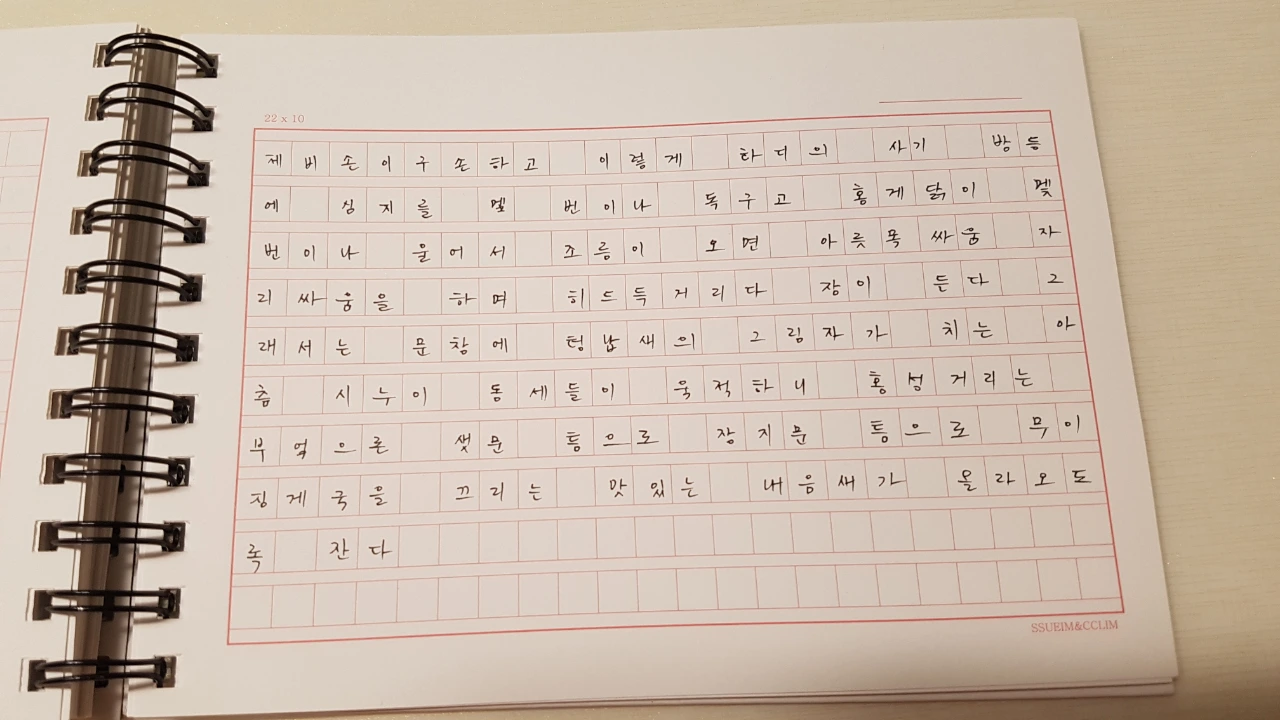 22 x 10
제비손이구손하고 이렇게 화디의 사기 방등
에 심지를 멫 번이나 독구고 홍게닭이 멫
번이나 울어서 조름이 오면 아릇목싸움 자
리싸움을 하며 히드득거리다 잠이 든다 그
래서는 문창에 텅납새의 그림자가 치는 아
츰 시누이 동세들이 욱적하니 흥성거리는
부엌으론 샛문 틈으로 장지문 틈으로 무이
징게국을 끄리는 맛있는 내음새가 올라오도
록 잔다
SSUEIM&CCLIM